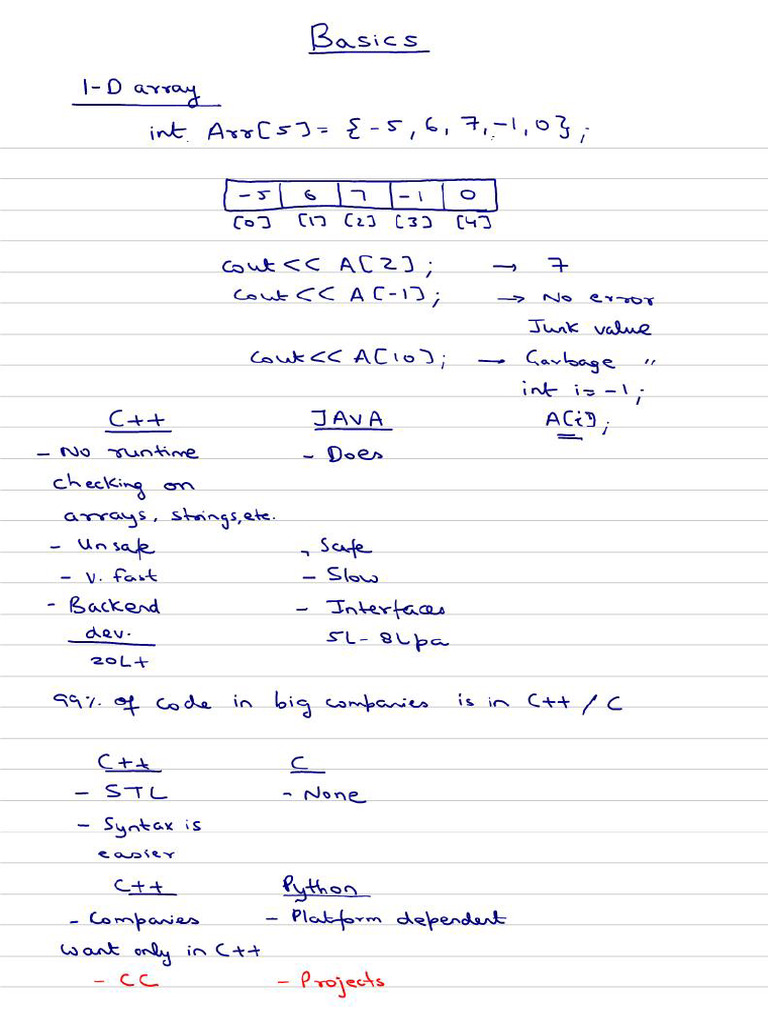 Basics
1-D array
int Arr[5] = {-5, 6, 7, -1, 0};
-5 6 7 -1 0
[0] [1] [2] [3] [4]
cout<< A[2]; → 7
cout<< A[-1]; → No error
Junk value
cout<< A[10]; → Garbage "
int i = -1;
A[i];
C++ JAVA
- No runtime - Does
checking on
arrays, strings, etc.
- Unsafe - Safe
- v. fast - Slow
- Backend - Interfaces
dev. 5L - 8Lpa
20L+
99% of code in big companies is in C++ / C
C++ C
- STL - None
- Syntax is
easier
C++ Python
- Companies - Platform dependent
want only in C++
- CC - Projects